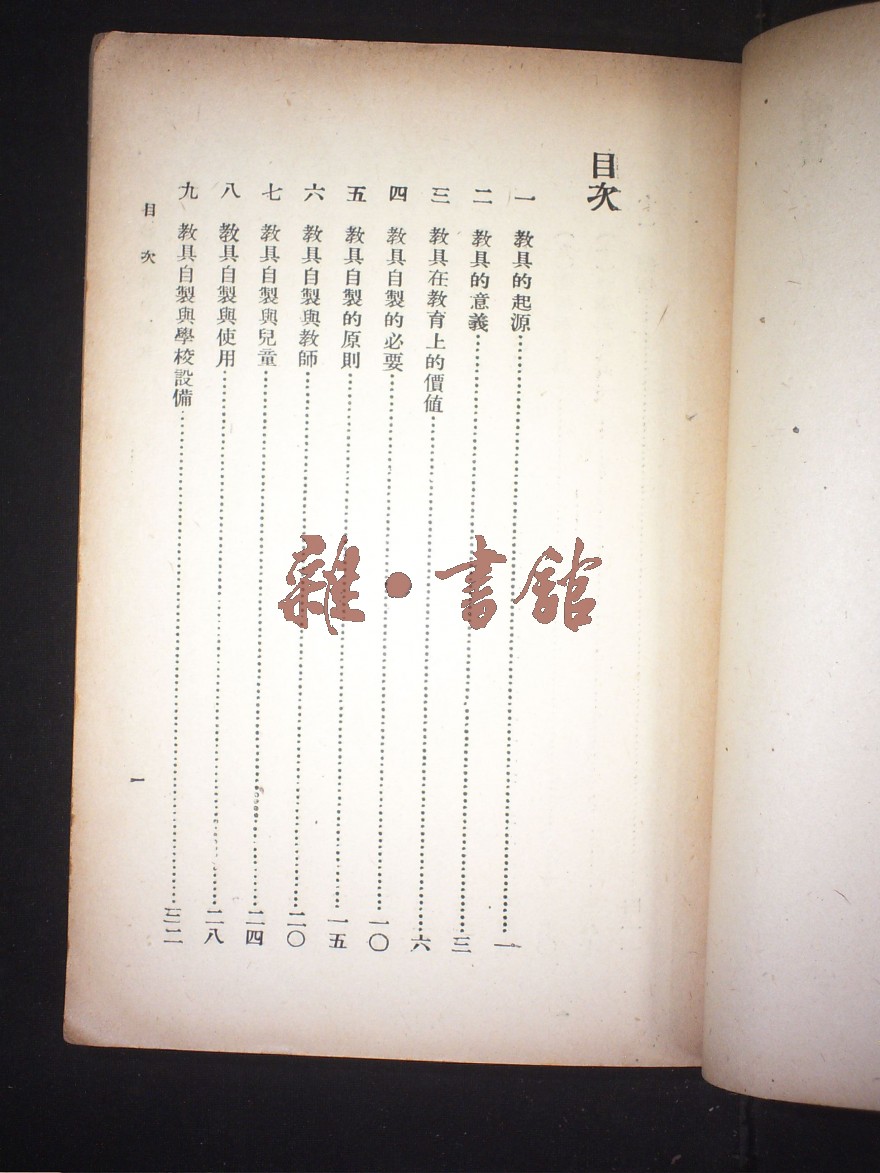 目次
一 教具的起源……一
二 教具的意義……三
三 教具在教育上的價值……六
四 教具自製的必要……一〇
五 教具自製的原則……一五
六 教具自製與教師……二〇
七 教具自製與兒童……二四
八 教具自製與使用……二八
九 教具自製與學校設備……三二
目次 一
雜•書館